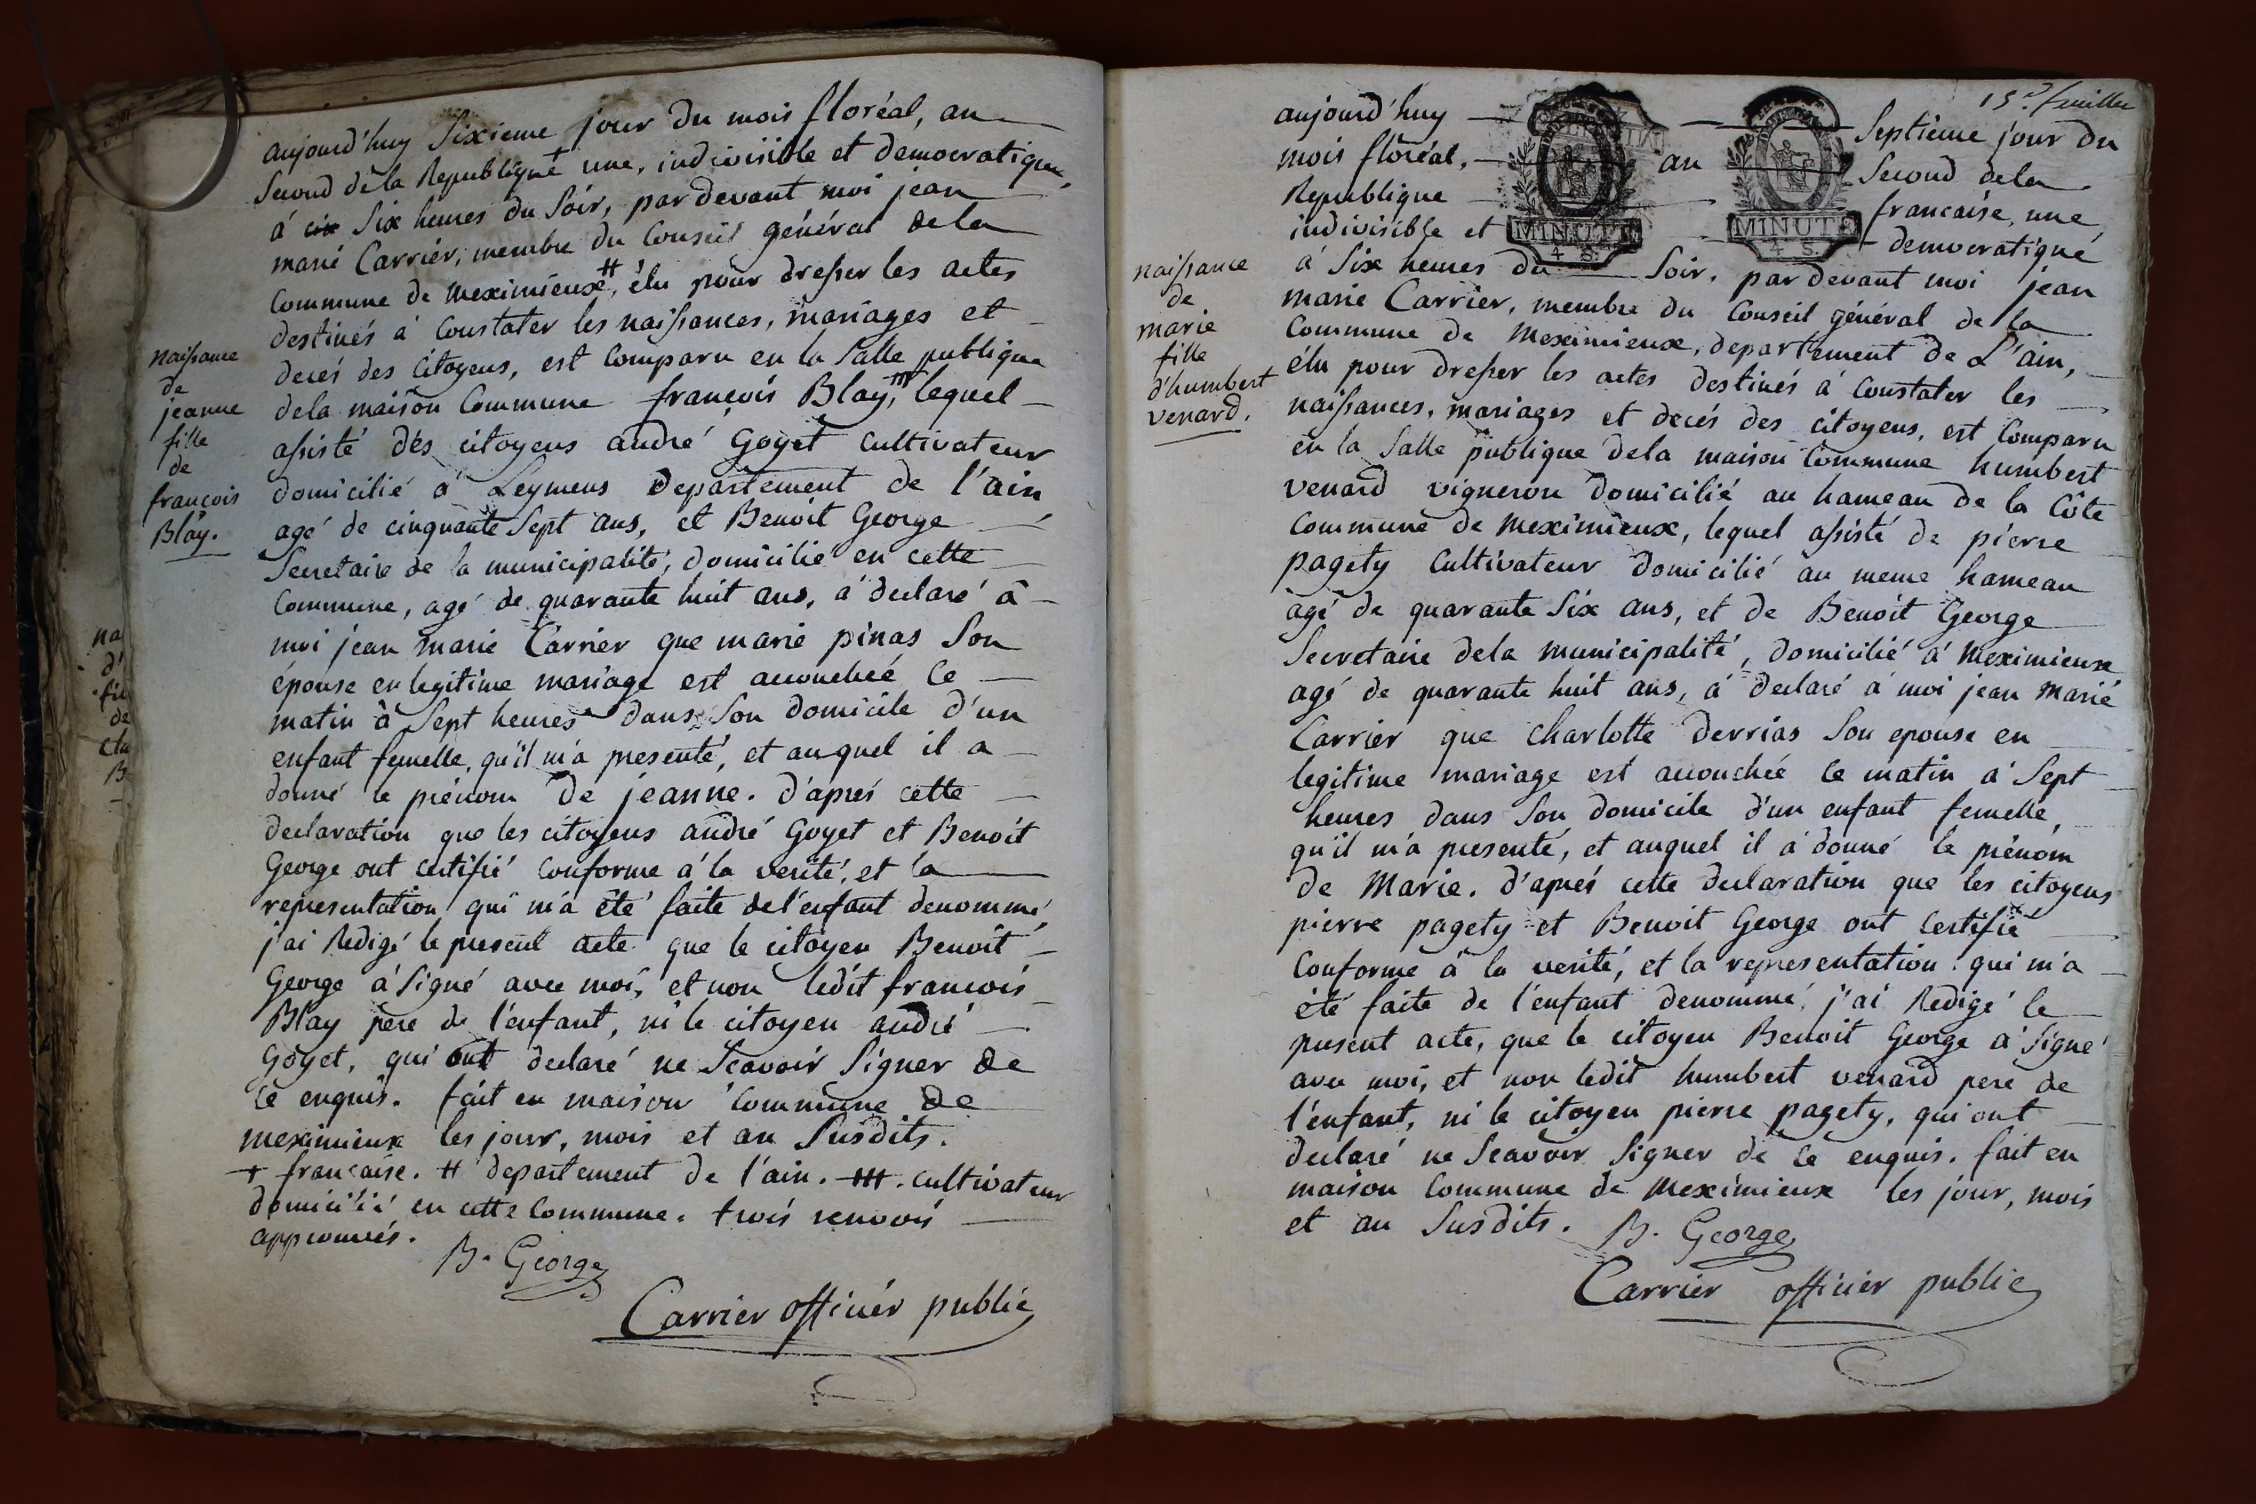 aujourd'huy sixieme jour du mois floréal, an
second de la Republique + une, indivisible et democratique,
à cix six heures du soir, par devant moi jean
marie Carrier, membre du Conseil général de la
Commune de meximieux ++, élu pour dresser les actes
destinés à Constater les naissances, mariages et
decés des Citoyens, est Comparu en la Salle publique
dela maison Commune françois Blay, +++ lequel
assisté des citoyens andré Goyet Cultivateur
domicilié à Leymens Departement de l'ain,
agé de cinquante sept ans, et Benoit George
Secretaire de la municipalité, domicilié en cette
Commune, agé de quarante huit ans, à declaré à
moi jean marie Carrier que marie pinas son
épouse en legitime mariage est accouchée ce
matin à sept heures dans son domicile d'un
enfant femelle, qu'il m'a presenté, et auquel il a
donné le prénom de jeanne. d'après cette
declaration que les citoyens andré Goyet et Benoit
George ont certifié conforme à la verité, et la
representation qui m'a été faite de l'enfant denommé,
j'ai Redigé le present acte que le citoyen Benoit
George à signé avec moi, et non ledit françois
Blay père de l'enfant, ni le citoyen andré
Goyet, qui ont declaré ne scavoir signer de
ce enquis. fait en maison Commune de
meximieux les jour, mois et an susdits.
+ française. ++ departement de l'ain. +++. cultivateur
domicilié en cette Commune. trois renvois
approuvés.
B. George
Carrier officier public
naissance
de
jeanne
fille
de
françois
Blay.
na
d'
fil
de
cla
B
15e feuillet
aujourd'huy septieme jour du
mois floréal, an second dela
Republique française, une,
indivisible et democratique
MINUTE
4 S.
MINUTE
4 S.
à six heures du soir, par devant moi jean
marie Carrier, membre du Conseil général de la
Commune de meximieux, departement de L'ain,
élu pour dresser les actes destinés à Constater les
naissances, mariages et decés des citoyens, est Comparu
en la salle publique dela maison Commune humbert
venard vigneron domicilié au hameau de la Côte
Commune de meximieux, lequel assisté de pierre
pagety Cultivateur domicilié au meme hameau
agé de quarante six ans, et de Benoit George
Secretaire dela municipalité, domicilié à meximieux
agé de quarante huit ans, à declaré à moi jean marie
Carrier que charlotte derrias son epouse en
legitime mariage est accouchée ce matin à sept
heures dans son domicile d'un enfant femelle,
qu'il m'a presenté, et auquel il à donné le prénom
de Marie. d'après cette declaration que les citoyens
pierre pagety et Benoit George ont certifié
Conforme à la verité, et la representation qui m'a
été faite de l'enfant denommé, j'ai Redigé le
present acte, que le citoyen Benoit George à signé
avec moi, et non ledit humbert venard pere de
l'enfant, ni le citoyen pierre pagety, qui ont
declaré ne scavoir signer de ce enquis. fait en
maison Commune de meximieux les jour, mois
et an susdits. B. George
Carrier officier public
naissance
de
marie
fille
d'humbert
venard.